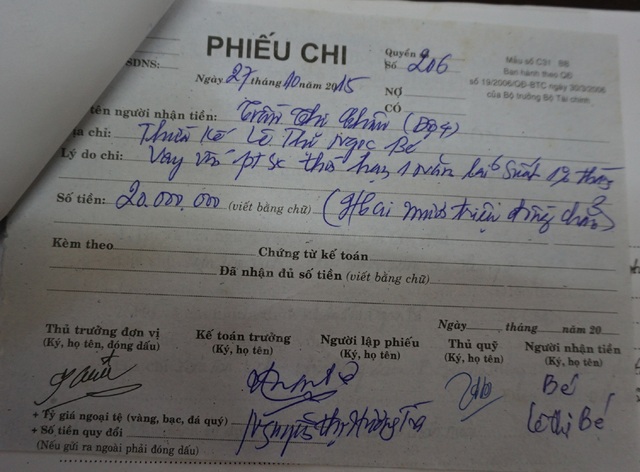 SDNS:
PHIẾU CHI
Quyển
Số 206
Mẫu số C31 BB
Ban hành theo QĐ
số 19/2006/QĐ-BTC ngày 30/3/2006
của Bộ trưởng Bộ Tài chính
Ngày 27 tháng 10 năm 2015
NỢ
CÓ
tên người nhận tiền: Trần Thị
a chỉ: Thừa Kế Lê Thị Ngọc Bé
Lý do chi: Vay vốn ptsx thời hạn 1 năm lãi Suất
Số tiền: 20.000.000 (viết bằng chữ) (Hai mươi triệu đồng chẵn)
Kèm theo Chứng từ kế toán
Đã nhận đủ số tiền (viết bằng chữ)
Ngày tháng năm 20
Thủ trưởng đơn vị Kế toán trưởng Người lập phiếu Thủ quỹ Người nhận tiền
(Ký, họ tên, đóng dấu) (Ký, họ tên) (Ký, họ tên) (Ký, họ tên) (Ký, họ tên)
Bé
Lê Thị Bé
+ Tỷ giá ngoại tệ (vàng, bạc, đá quý) Nguyễn Thị Hương Trà
+ Số tiền quy đổi
(Nếu gửi ra ngoài phải đóng dấu)